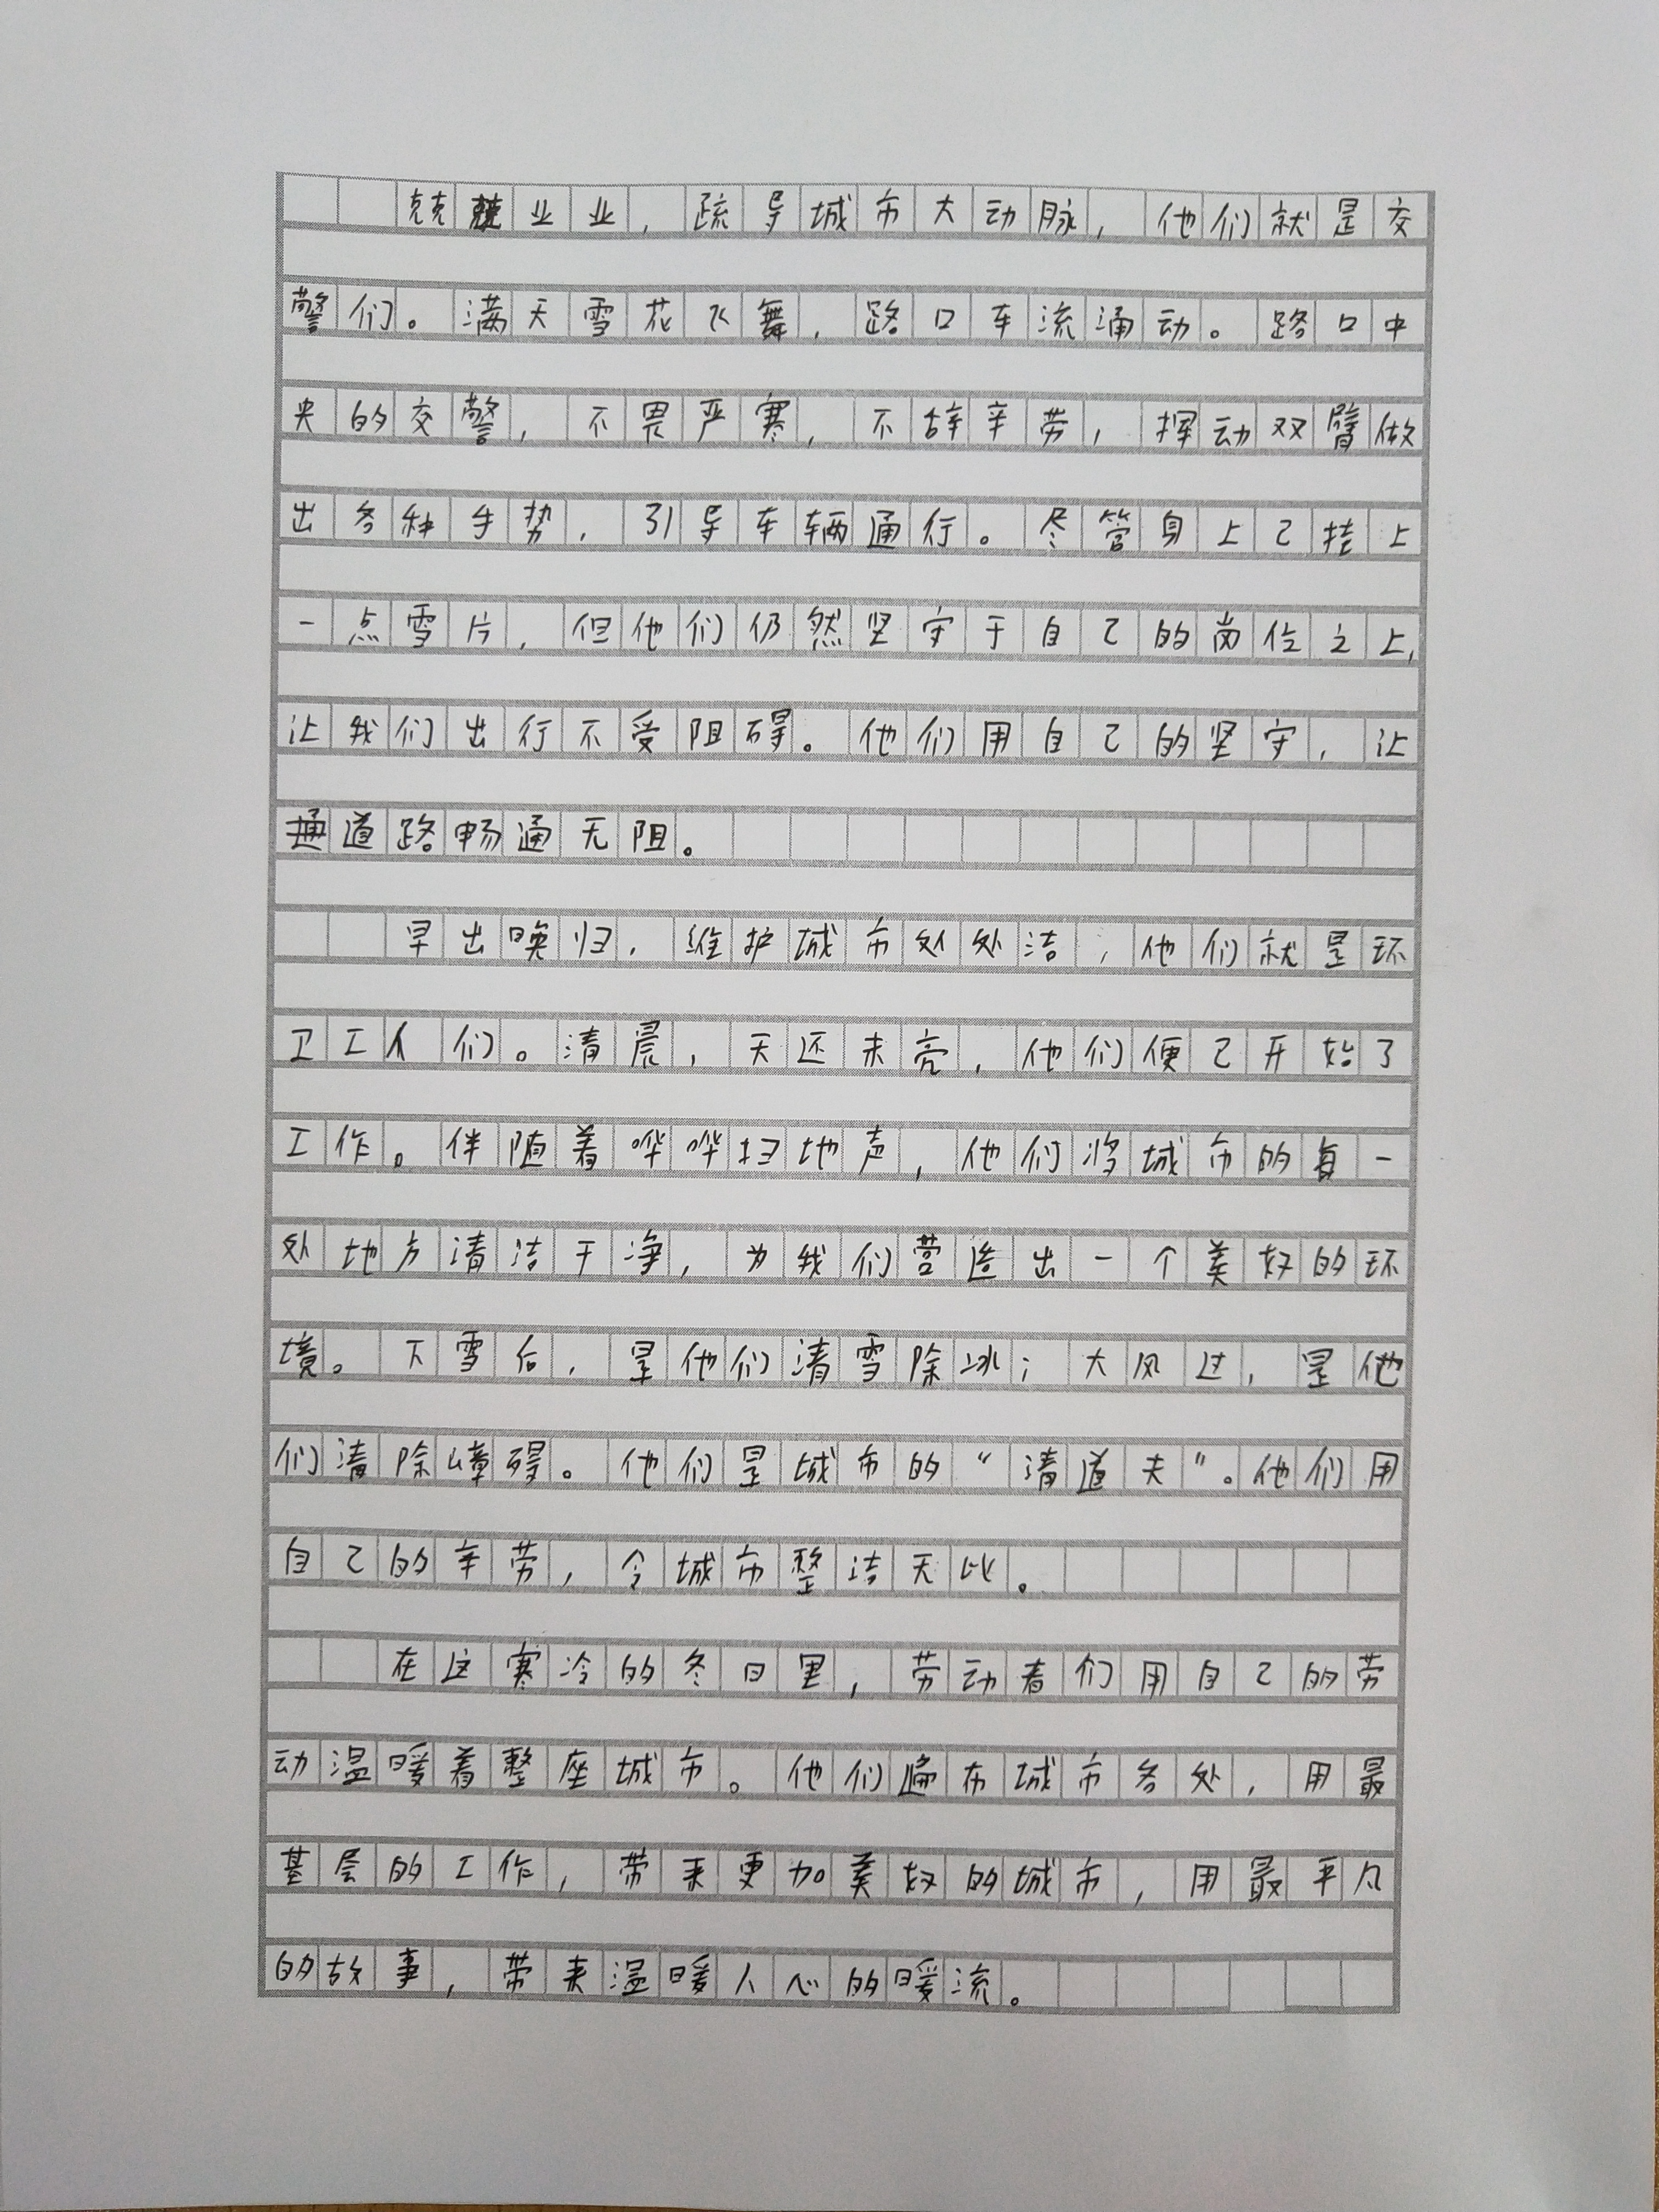 兢兢业业，疏导城市大动脉，他们就是交
警们。满天雪花飞舞，路口车流涌动。路口中
央的交警，不畏严寒，不辞辛劳，挥动双臂做
出各种手势，引导车辆通行。尽管身上已挂上
一点雪片，但他们仍然坚守于自己的岗位之上，
让我们出行不受阻碍。他们用自己的坚守，让
道路畅通无阻。
早出晚归，维护城市处处洁，他们就是环
卫工人们。清晨，天还未亮，他们便已开始了
工作。伴随着哗哗扫地声，他们将城市的每一
处地方清洁干净，为我们营造出一个美好的环
境。下雪后，是他们清雪除冰；大风过，是他
们清除障碍。他们是城市的“清道夫”。他们用
自己的辛劳，令城市整洁无比。
在这寒冷的冬日里，劳动者们用自己的劳
动温暖着整座城市。他们遍布城市各处，用最
基层的工作，带来更加美好的城市，用最平凡
的故事，带来温暖人心的暖流。